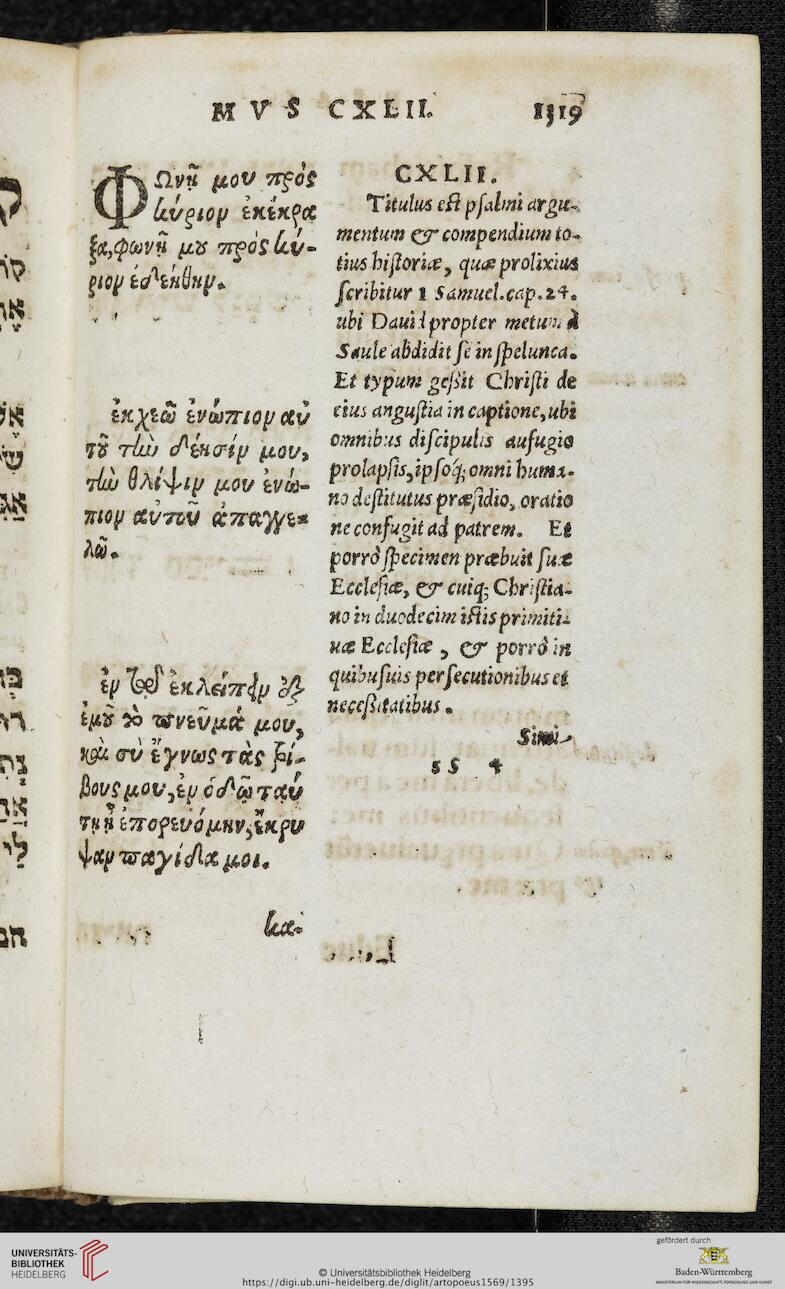 MVS CXLII. 1319
ΦΩνῇ μου πρὸς
κύριον ἐκέκρα
ξα, φωνῇ μȣ πρὸς κύ-
ριον ἐδεήθην.
ἐκχεῶ ἐνώπιον αὐ
τȣ͂ τὼ δέησίν μου,
τὼ θλίψιν μου ἐνώ-
πιον αὐτοῦ ἀπαγγε-
λῶ.
ἐν τῷ ἐκλείπειν ἐξ
ἐμȣ͂ τὸ πνεῦμά μου,
καὶ σὺ ἔγνως τὰς τρί-
βους μου, ἐν ὁδῷ ταύ
τῃ ᾗ ἐπορευόμην, ἔκρυ
ψαν παγίδα μοι.
κα-
CXLII.
Titulus est psalmi argu-
mentum & compendium to-
tius historiæ, quæ prolixius
scribitur 1 Samuel. cap. 24.
ubi Dauid propter metum à
Saule abdidit se in spelunca.
Et typum gessit Christi de
eius angustia in captione, ubi
omnibus discipulis aufugio
prolapsis, ipsoq; omni huma-
no destitutus præsidio, oratio
ne confugit ad patrem. Et
porrò specimen præbuit suæ
Ecclesiæ, & cuiq; Christia-
no in duodecim istis primiti-
uæ Ecclesiæ, & porrò in
quibusuis persecutionibus et
necessitatibus.
Simi-
s S 4
ק
קו
אֵ
UNIVERSITÄTS-
BIBLIOTHEK
HEIDELBERG
© Universitätsbibliothek Heidelberg
https://digi.ub.uni-heidelberg.de/diglit/artopoeus1569/1395
gefördert durch
Baden-Württemberg
MINISTERIUM FÜR WISSENSCHAFT, FORSCHUNG UND KUNST